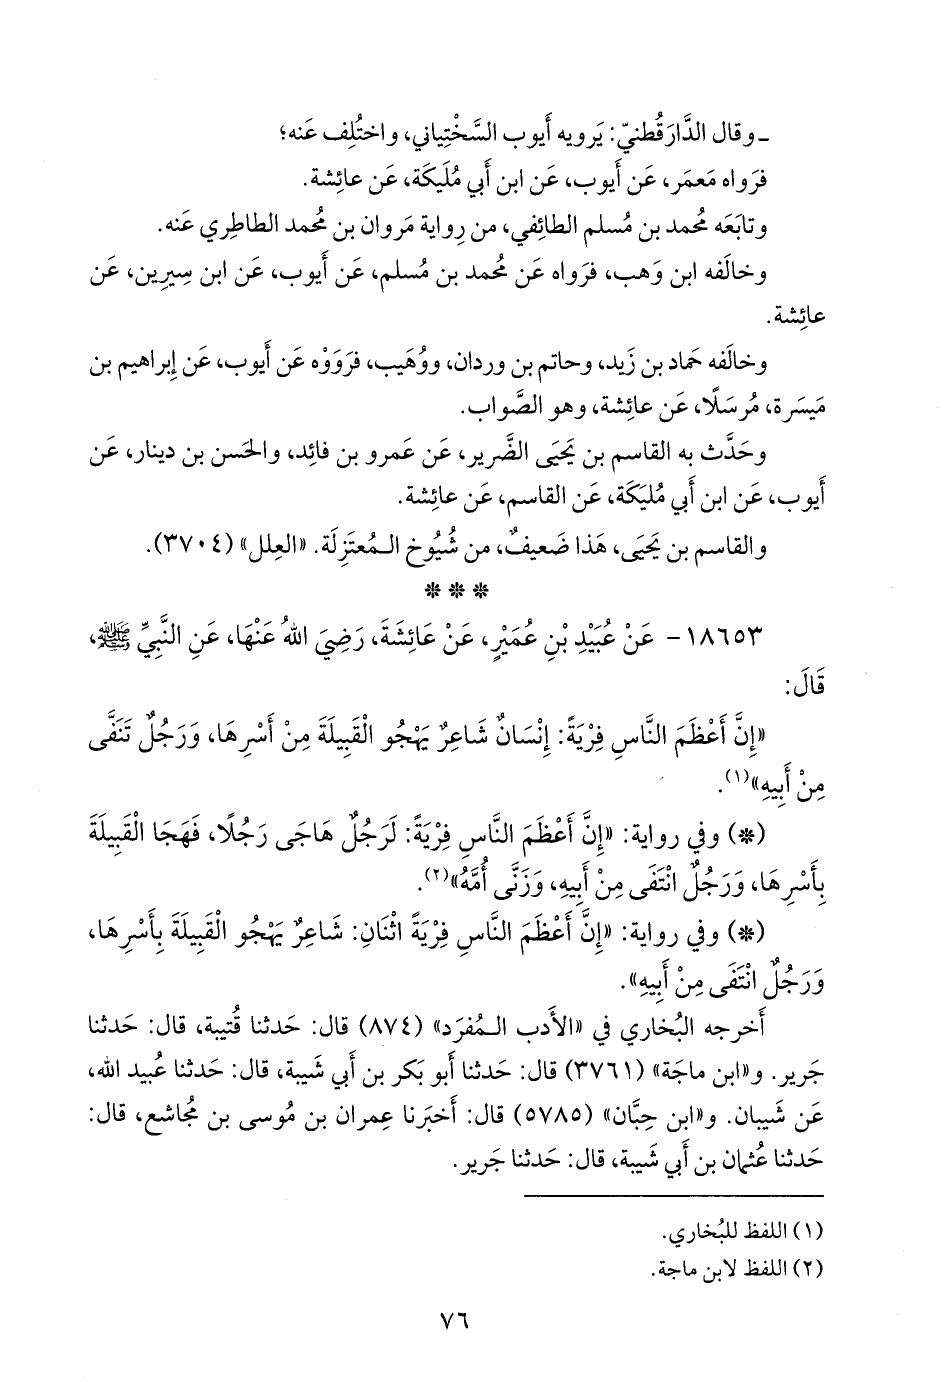 ـ وقال الدَّارَقُطنيّ: يَرويه أَيوب السَّخْتِياني، واختُلِف عَنه؛
فرَواه مَعمَر، عَن أَيوب، عَن ابن أَبي مُلَيكَة، عَن عائِشة.
وتابَعَه مُحمد بن مُسلم الطائِفي، من رِواية مَروان بن مُحمد الطاطِري عَنه.
وخالَفه ابن وَهب، فرَواه عَن مُحمد بن مُسلم، عَن أَيوب، عَن ابن سِيرين، عَن
عائِشة.
وخالَفه حَماد بن زَيد، وحاتم بن وردان، ووُهَيب، فرَوَوْه عَن أَيوب، عَن إِبراهيم بن
مَيسَرة، مُرسَلًا، عَن عائِشة، وهو الصَّواب.
وحَدَّث به القاسم بن يَحيَى الضَّرير، عَن عَمرو بن فائِد، والحَسن بن دينار، عَن
أَيوب، عَن ابن أَبي مُليَكَة، عَن القاسم، عَن عائِشة.
والقاسم بن يَحيَى، هَذا ضَعيفٌ، من شُيُوخ الـمُعتَزِلَة. «العِلل» (٣٧٠٤).
* * *
١٨٦٥٣- عَنْ عُبَيْدِ بْنِ عُمَيْرٍ، عَنْ عَائِشَةَ، رَضِيَ اللهُ عَنْهَا، عَنِ النَّبِيِّ ﷺ،
قَالَ:
«إِنَّ أَعْظَمَ النَّاسِ فِرْيَةً: إِنْسَانٌ شَاعِرٌ يَهْجُو الْقَبِيلَةَ مِنْ أَسْرِهَا، وَرَجُلٌ تَنَفَّى
مِنْ أَبِيهِ»(١).
(*) وفي رواية: «إِنَّ أَعْظَمَ النَّاسِ فِرْيَةً: لَرَجُلٌ هَاجَى رَجُلًا، فَهَجَا الْقَبِيلَةَ
بِأَسْرِهَا، وَرَجُلٌ انْتَفَى مِنْ أَبِيهِ، وَزَنَّى أُمَّهُ»(٢).
(*) وفي رواية: «إِنَّ أَعْظَمَ النَّاسِ فِرْيَةً اثْنَانِ: شَاعِرٌ يَهْجُو الْقَبِيلَةَ بِأَسْرِهَا،
وَرَجُلٌ انْتَفَى مِنْ أَبِيهِ».
أَخرجه البُخاري في «الأَدب الـمُفرَد» (٨٧٤) قال: حَدثنا قُتيبة، قال: حَدثنا
جَرير. و«ابن ماجة» (٣٧٦١) قال: حَدثنا أَبو بَكر بن أَبي شَيبة، قال: حَدثنا عُبيد الله،
عَن شَيبان. و«ابن حِبَّان» (٥٧٨٥) قال: أَخبَرنا عِمران بن مُوسى بن مُجاشع، قال:
حَدثنا عُثمان بن أَبي شَيبة، قال: حَدثنا جَرير.
(١) اللفظ للبُخاري.
(٢) اللفظ لابن ماجة.
٧٦